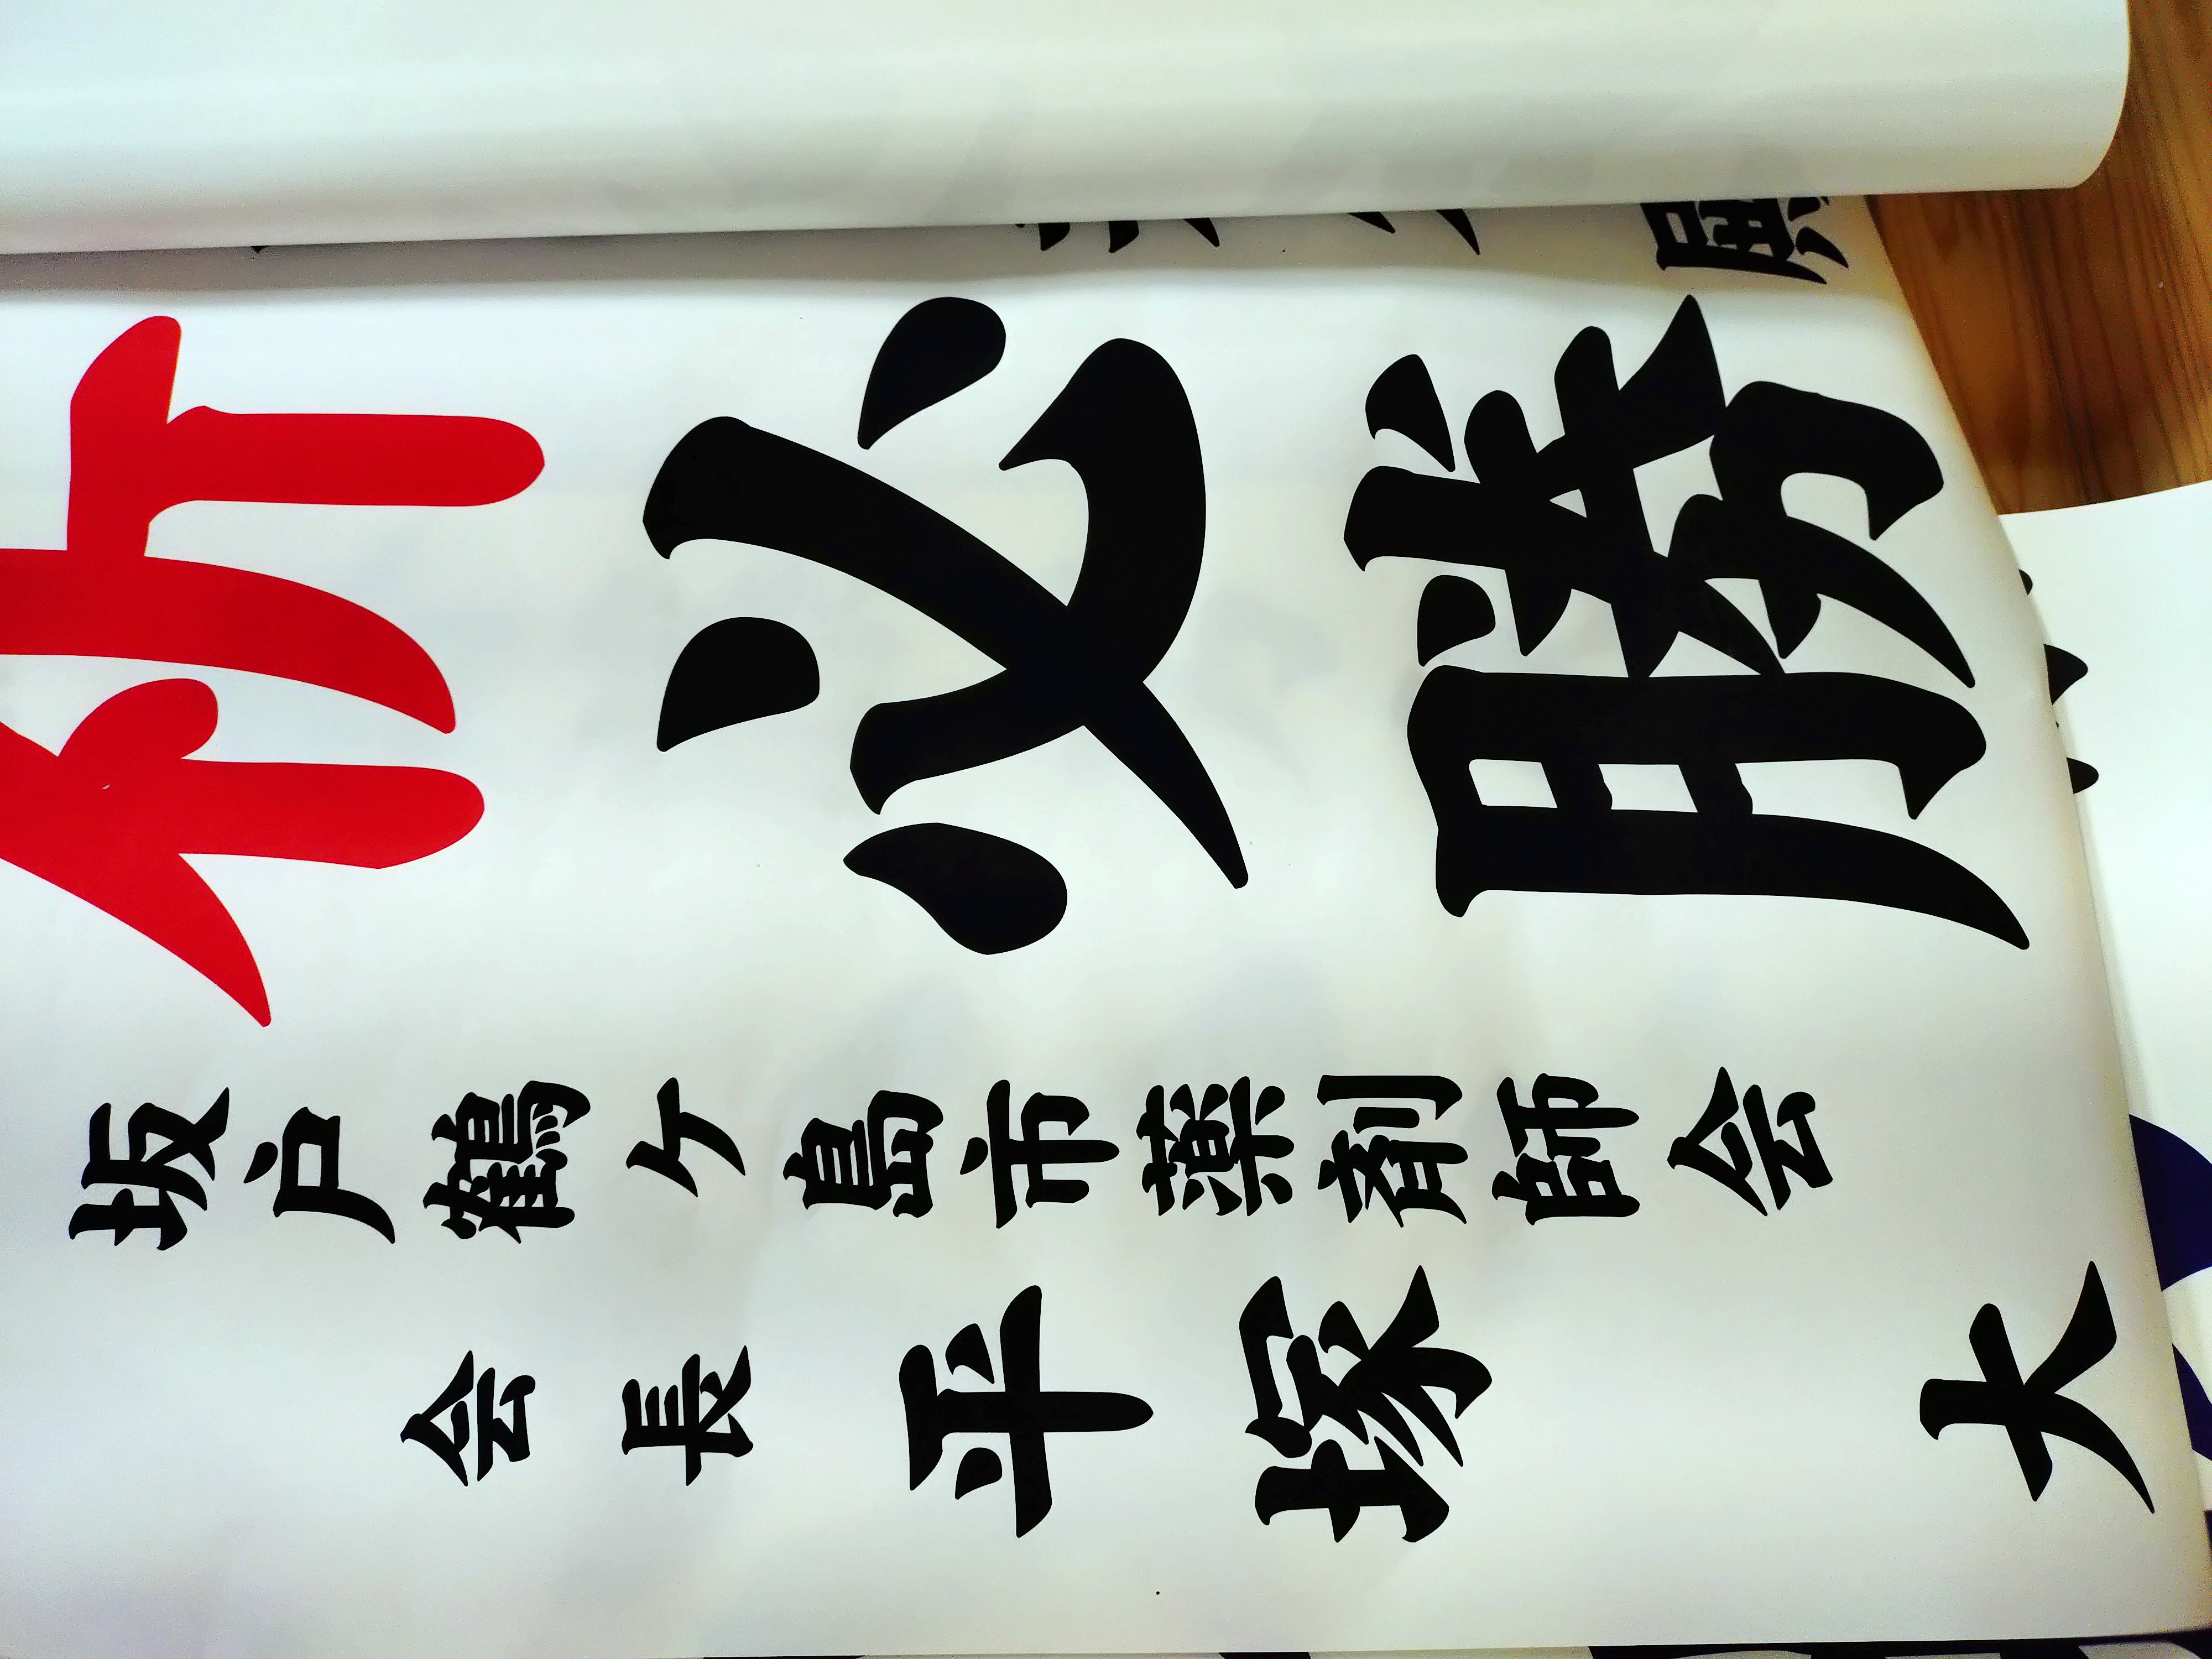 祈必勝
坂戸鶴ヶ島市薬剤師会
会長 平塚 大